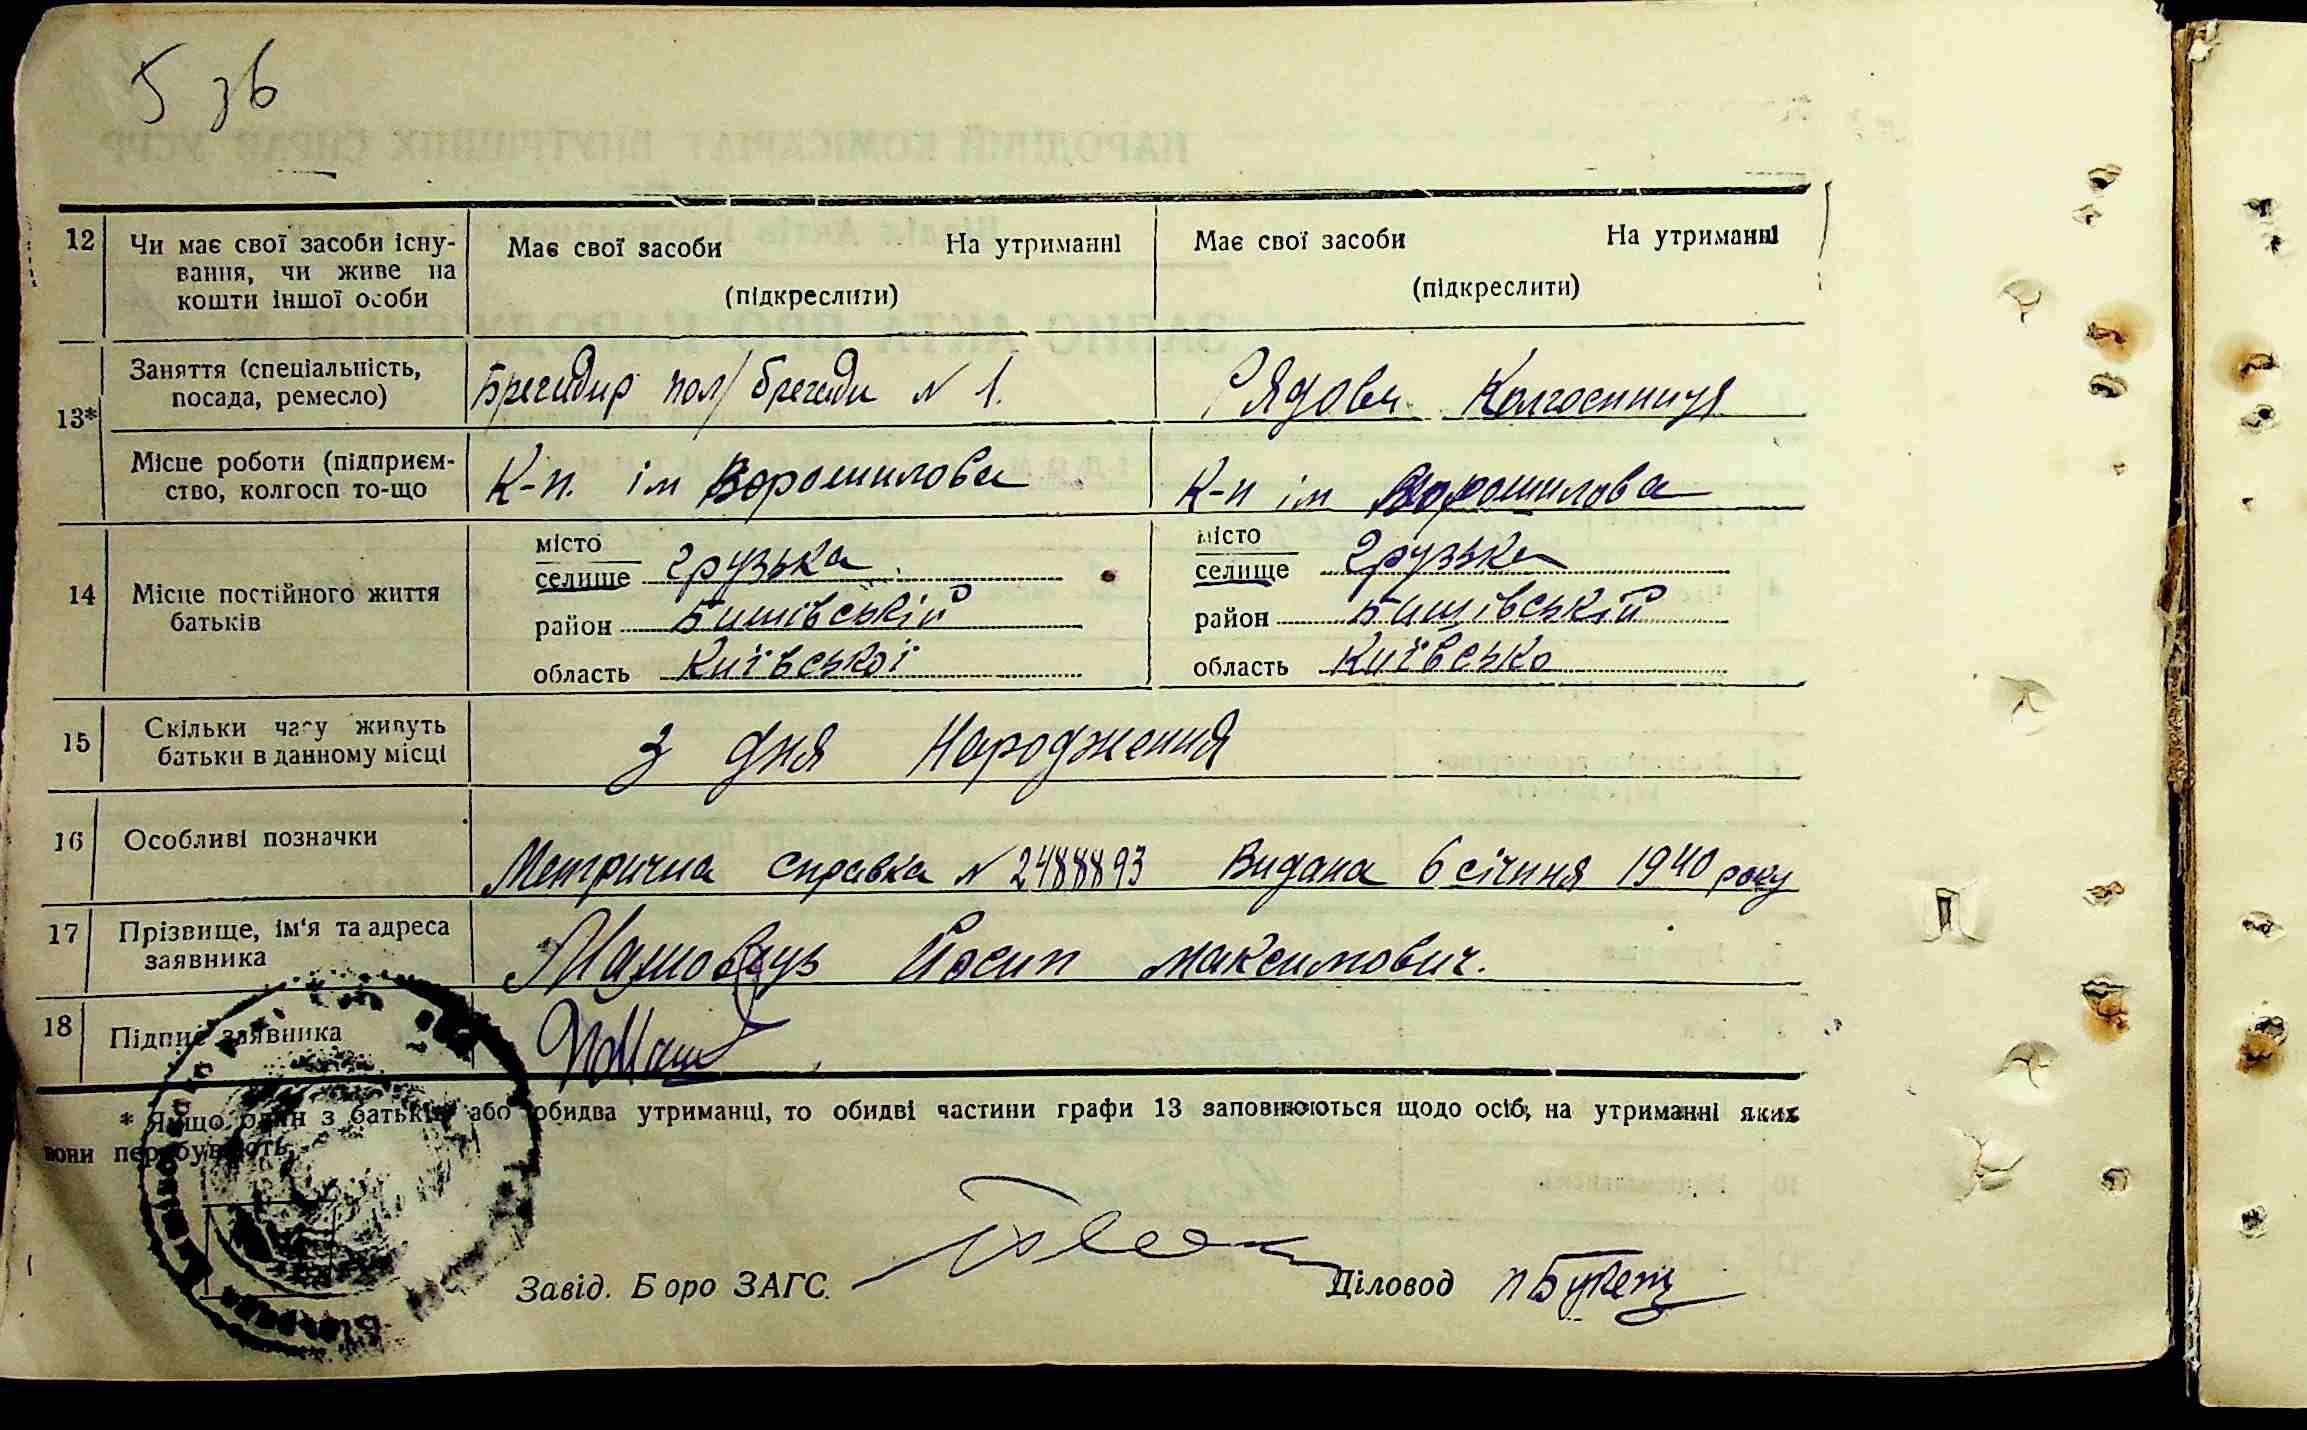 5 зв
12 Чи має свої засоби існу-
вання, чи живе на
кошти іншої особи
Має свої засоби На утриманні
(підкреслити)
Має свої засоби На утриманні
(підкреслити)
13*
Заняття (спеціальність,
посада, ремесло)
Бригадир пол/бригади N 1.
Рядова Колгоспниця
Місце роботи (підприєм-
ство, колгосп то-що
К-п. ім Ворошилова
К-п ім Ворошилова
14 Місце постійного життя
батьків
місто
селище Грузька
район Бишівській
область Київської
місто
селище Грузька
район Бишівській
область Київсько
15 Скільки часу живуть
батьки в данному місці
З дня Народження
16 Особливі позначки
Метрична справка N 2488893 Видана 6 січння 1940 року
17 Прізвище, ім'я та адреса
заявника
Йосип максимович.
18 Підпис заявника
* Якщо один з батьків або обидва утриманці, то обидві частини графи 13 заповнюються щодо осіб, на утриманні яких
вони перебувають.
Завід. Боро ЗАГС.
Діловод